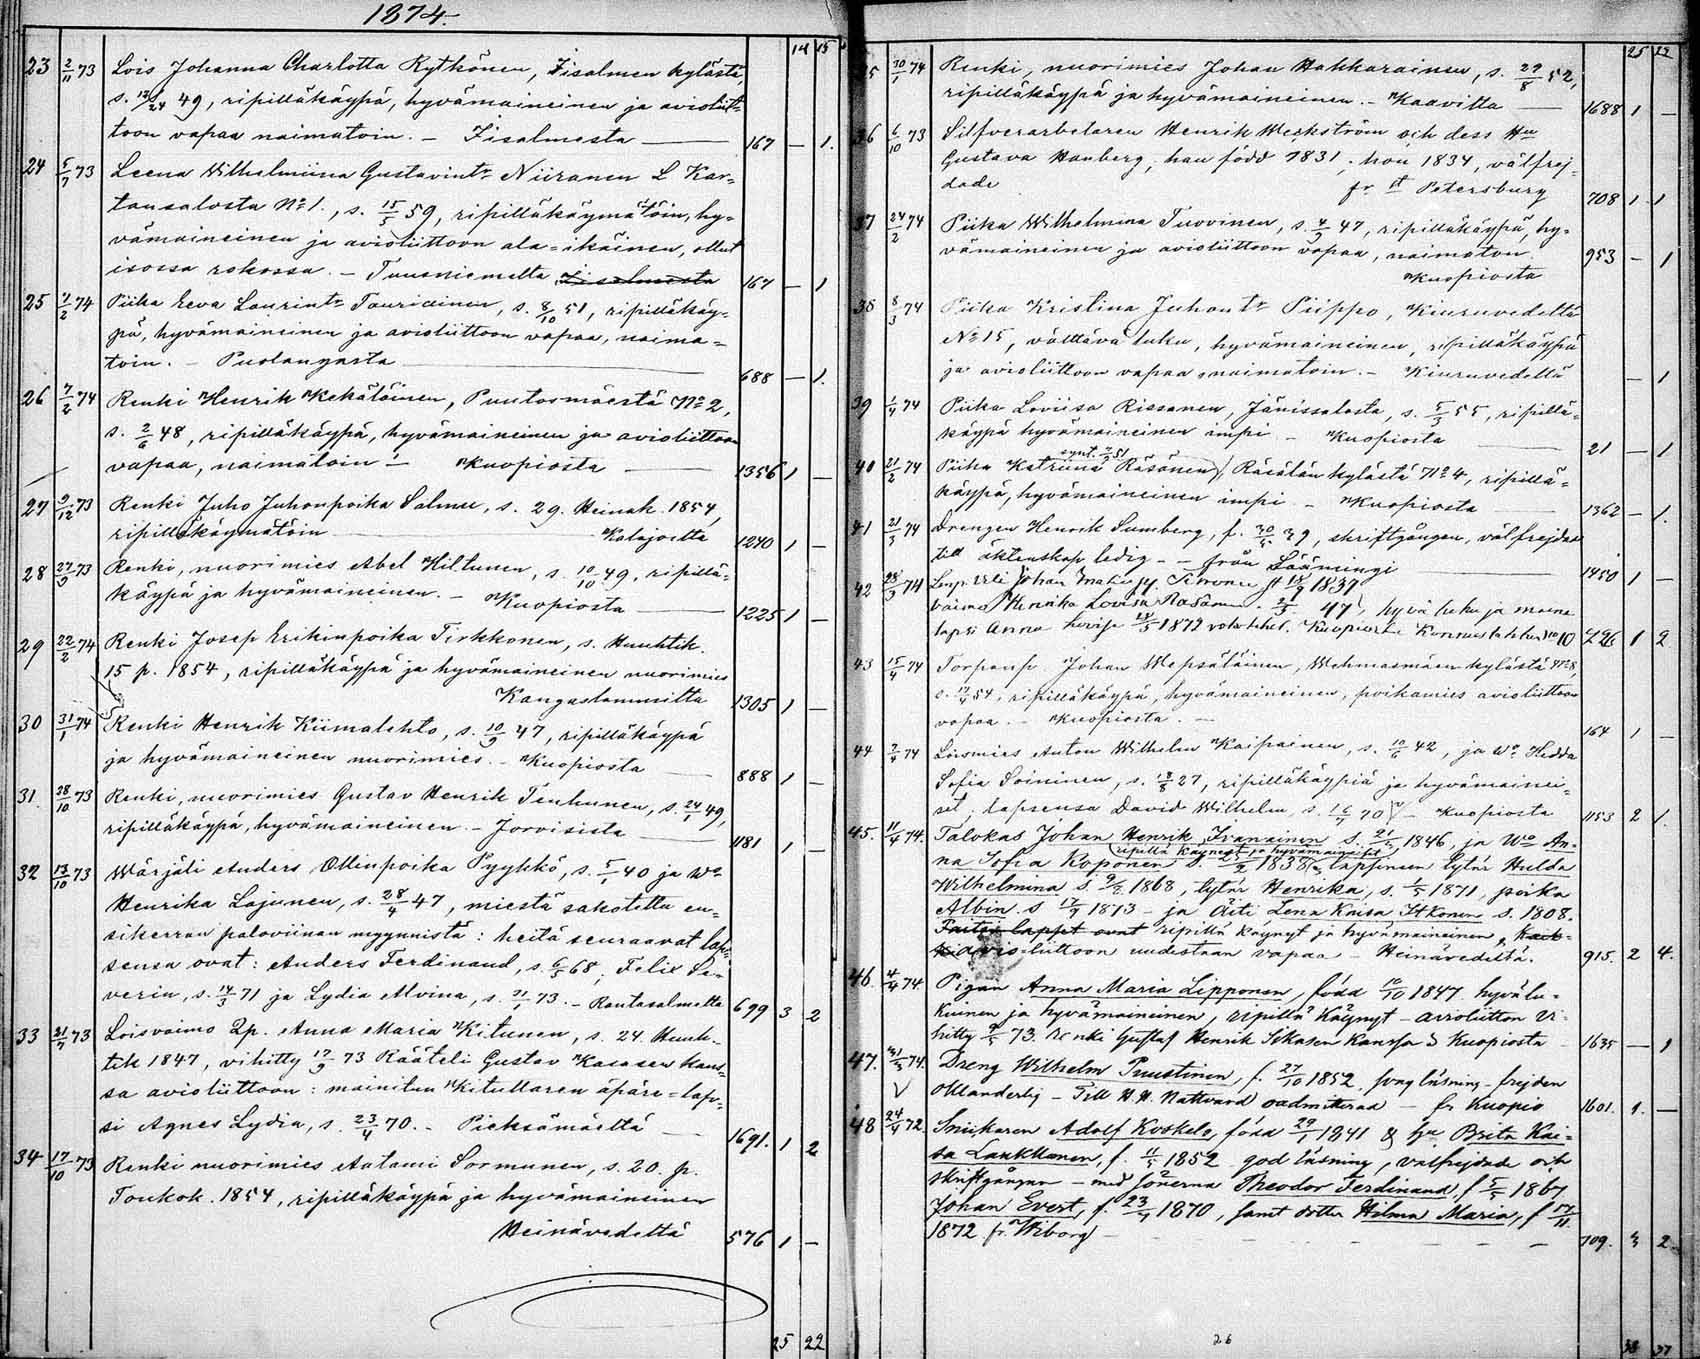 1874.
14 15
23 2/11 73 Lois Johanna Charlotta Rytkönen, Iisalmen kylästä,
49, ripilläkäypä, hyvämaineinen ja avioliit-
toon vapaa naimatoin. — Iisalmesta — 167 — 1.
24 5/7 73 Leena Wilhelmiina Gustavintr Niiranen L Kar-
tansalosta No 1., s. 15/5 59, ripilläkäymätöin, hy-
vämaineinen ja avioliittoon ala-ikäinen, ollut
isossa rokossa. — Tuusniemeltä Iisalmesta 167 — 1
25 7/2 74 Piika Eeva Laurintr Tauriainen, s. 8/10 51, ripilläkäy-
pä, hyvämaineinen ja avioliittoon vapaa, naima-
toin. — Puolangasta — 688 — 1.
26 7/2 74 Renki Henrik Kekäläinen, Puutosmäestä No 2,
s. 2/6 48, ripilläkäypä, hyvämaineinen ja avioliittoon
vapaa, naimatoin — Kuopiosta — 1356 1 —
27 9/12 73 Renki Juho Juhonpoika Salmu, s. 29. Heinäk. 1854,
ripilläkäymätöin — 1240 1 —
28 27/9 73 Renki, nuorimies Abel Hiltunen, s. 10/10 49, ripillä-
käypä ja hyvämaineinen. — Kuopiosta — 1225 1 —
29 22/2 74 Renki Josep Erikinpoika Tirkkonen, s. Huuhtik.
15 p. 1854, ripilläkäypä ja hyvämaineinen nuorimies
Kangaslammilta 1305 1 —
30 31/1 74 Renki Henrik Kiimalehto, s. 10/9 47, ripilläkäypä
ja hyvämaineinen nuorimies. — Kuopiosta — 888 1 —
31. 28/10 73 Renki, nuorimies Gustav Henrik Tenhunen, s. 24/1 49,
ripilläkäypä, hyvämaineinen. — Jorvisista — 1181 1 —
32 13/10 73 Wärjäli Anders Ollinpoika Pyykkö, s. 5/1 40 ja Wo
Henrika Lajunen, s. 28/4 47, miestä sakotettu en-
sikerran paloviinan myynnistä: heitä seuraavat lap-
sensa ovat: Anders Ferdinand, s. 6/5 68, Felix Se-
verin, s. 14/3 71 ja Lydia Alvina, s. 73. — Rantasalmelta 699 3 2
33 21/7 73 Loisvaimo Lp. Anna Maria Kitunen, s. 24. Huuh-
tik 1847, vihitty 17/9 73 Rääteli Gustav Kasasen kans-
sa avioliittoon: mainitun Kitullaren äpärä-lap-
si Agnes Lydia, s. 23/4 70. — Pieksämäeltä — 1691. 1 2
34 17/10 73 Renki nuorimies Aatami Sormunen, s. 20. p.
Toukok. 1854, ripilläkäypä ja hyvämaineinen
Heinävedeltä 576 1 —
25 22
25 22
35 30/1 74 Renki, nuorimies Johan Hakkarainen, s. 29/8 52,
ripilläkäypä ja hyvämaineinen. — Kaavilta — 1688 1 —
36 6/10 73 Silfverarbetaren Henrik Weckström och dess Hu
Gustava Hanberg, han född 1831, hon 1834, välfrej-
dade fr. St Petersburg 708 1 1
37 24/2 74 Piika Wilhelmina Tuovinen, s. 4/9 47, ripilläkäypä, hy-
vämaineinen ja avioliittoon vapaa, naimaton.
Kuopiosta 953 — 1
38 8/3 74 Piika Kristina Juhontr Piippo, Kiuruvedeltä
No 15, välttävä luku, hyvämaineinen, ripilläkäypä
ja avioliittoon vapaa, naimatoin. — Kiuruvedeltä — 1
39 1/4 74 Piika Loviisa Rissanen, Jänissalosta, s. 5/3 55, ripillä-
käypä hyvämaineinen impi — Kuopiosta — 21 — 1
40 21/2 74 Piika Katriina Räsänen, Räsälän kylästä No 4, ripillä-
käypä, hyvämaineinen impi. — Kuopiosta — 1362 — 1.
41 21/3 74 Drengen Henrik Sumberg, f. 39, skriftgången, välfrejdad
till äktenskap ledig — från Säämingi — 1450 1 —
42 28/3 74 Johan 1837
vaimo Henrika Lovisa 47, hyvä luku ja maine
lapsi Anna 1872 Kuopiosta 10 726 1 2
43 15/4 74 Torpanp. Johan Wepsäläinen, Wehmasmäen kylästä No 8,
s. 54, ripilläkäypä, hyvämaineinen, poikamies avioliittoon
vapaa. — Kuopiosta. — 164 1 —
44 7/4 74 Loismies Anton Wilhelm Kaipainen, s. 10/6 42, ja Wo Hedda
Sofia Soininen, s. 18/5 27, ripilläkäypiä ja hyvämainei-
set, lapsensa David Wilhelm, s. 16/7 70 — Kuopiosta 1153 2 1.
45. 11/4 74. Talokas Johan Henrik Ivanainen s. 1846, ja Wo An-
ripillä käynyt ja hyvämaineiset
na Sofia Koponen s. 1838, lapsineen tytär Hulda
Wilhelmina s. 1868, tytär Henrika, s. 1/5 1871, poika
Albin. s 17/9 1873 — ja Äiti Lena Kaisa Itkonen s. 1808.
ripillä käynyt ja hyvämaineinen,
avioliittoon uudestaan vapaa — Heinävedeltä. 915. 2 4.
46. 4/4 74 Pigan Anna Maria Lipponen, född 10/10 1847. hyvälu-
kuinen ja hyvämaineinen, ripillä käynyt — avioliitton vi-
hitty 73. Renki Gustaf Henrik Sikasen kanssa Kuopiosta — 1635 — 1
47. 74. Dreng Wilhelm Puustinen, f. 27/10 1852, svag läsning — frejden
oklanderlig — Till H. H. Nattvard oadmitterad — fr. Kuopio 1601. 1. —
48 24/4 72 Snickaren Adolf Koskelo, född 29/1 1841 & hu Brita Kai-
sa Laukkanen, f. 11/5 1852 god läsning, välfrejdade och
skriftgångna — med sönerna Theodor Ferdinand, f 5/5 1867
Johan Evert, f. 23/4 1870, samt dotter Hilma Maria, f 17/11
1872 fr. Wiborg — 709. 3 2.
26
38 37